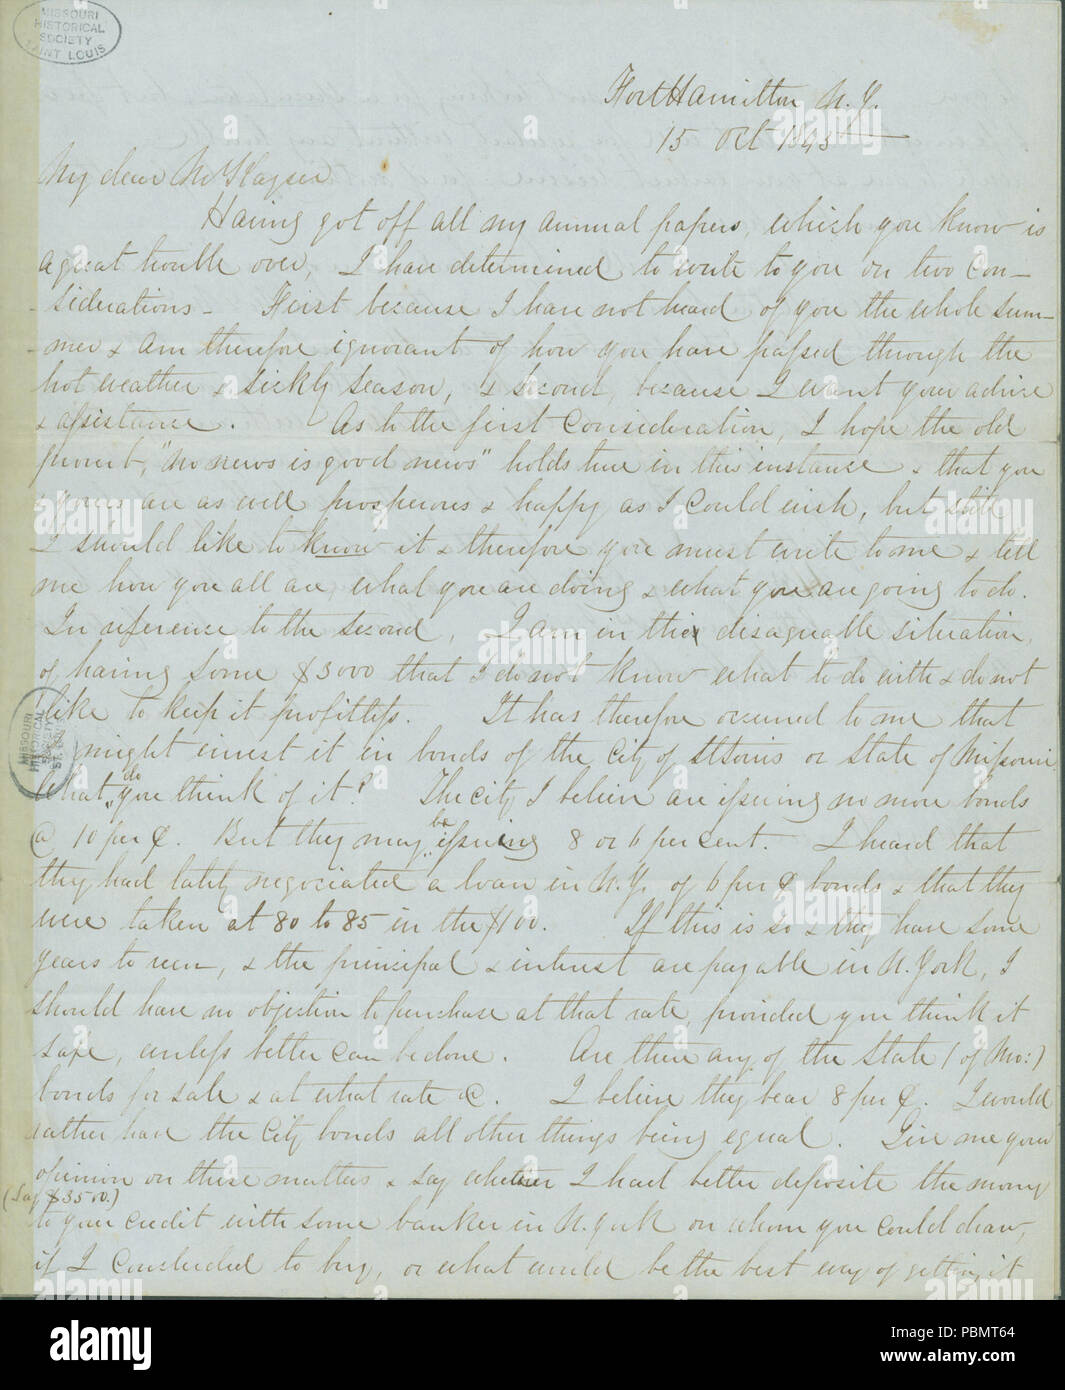 MISSOURI
HISTORICAL
SOCIETY
SAINT LOUIS
Fort Hamilton N. Y.
15 Oct 1845
My dear Mr Kayser
Having got off all my annual papers, which you know is
a great trouble over, I have determined to write to you on two con-
-siderations - First because I have not heard of you the whole sum-
-mer & am therefore ignorant of how you have passed through the
hot weather & sickly season, & second, because I want your advice
& assistance. As to the first consideration, I hope the old
proverb, "no news is good news" holds true in this instance & that you
& yours are as well prosperous & happy as I could wish, but still
I should like to know it & therefore you must write to me & tell
me how you all are, what you are doing & what you are going to do.
In reference to the second, I am in the disagreeable situation,
of having some $3000 that I do not know what to do with & do not
like to keep it profitless. It has therefore occurred to me that
might invest it in bonds of the City of St Louis or State of Missouri
What do you think of it? The City I believe are issuing no more bonds
@ 10 per ct. But they may be issuing 8 or 6 per cent. I heard that
they had lately negociated a loan in N.Y. of 6 per ct bonds & that they
were taken at 80 to 85 in the $100. If this is so & they have some
years to run, & the principal & interest are payable in N. York, I
should have no objection to purchase at that rate, provided you think it
safe, unless better can be done. Are there any of the State (of Mo:)
bonds for sale & at what rate &c. I believe they bear 8 per ct. I would
rather have the City bonds all other things being equal. Give me your
opinion on these matters & say whether I had better deposite the money
(Say $3500.)
to your credit with some banker in N. York on whom you could draw,
if I concluded to buy, or what would be the best way of getting it
MISSOURI
HISTORICAL
SOCIETY
alamy
a
alamy stock photo
PBMT64
www.alamy.com